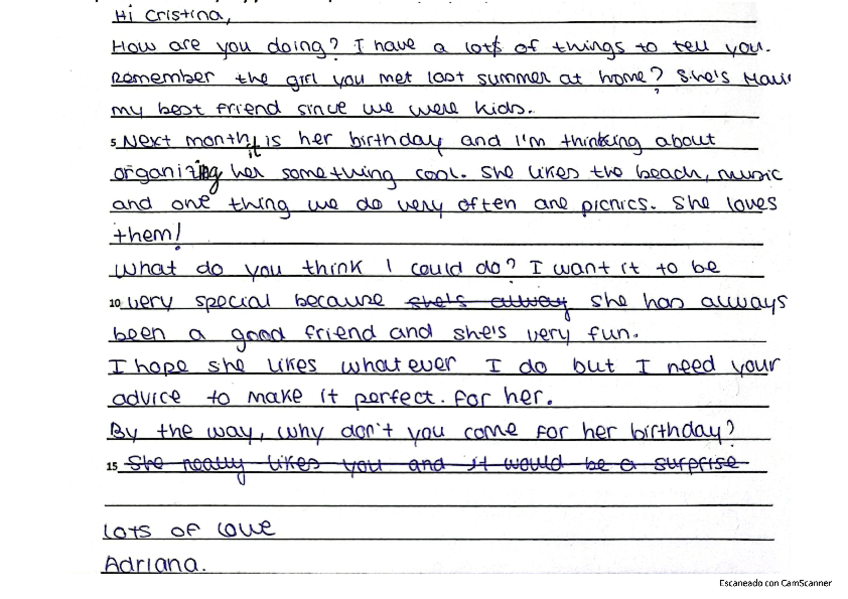 Hi Cristina,
How are you doing? I have a lots of things to tell you.
Remember the girl you met last summer at home? She's
my best friend since we were kids.
5 Next month it is her birthday and I'm thinking about
organizing her something cool. She likes the beach, music
and one thing we do very often are picnics. She loves
them!
What do you think I could do? I want it to be
10 very special because she's allway she has always
been a good friend and she's very fun.
I hope she likes whatever I do but I need your
advice to make it perfect. for her.
By the way, why don't you come for her birthday?
15 She really likes you and it would be a surprise
Lots of love
Adriana.
Escaneado con CamScanner